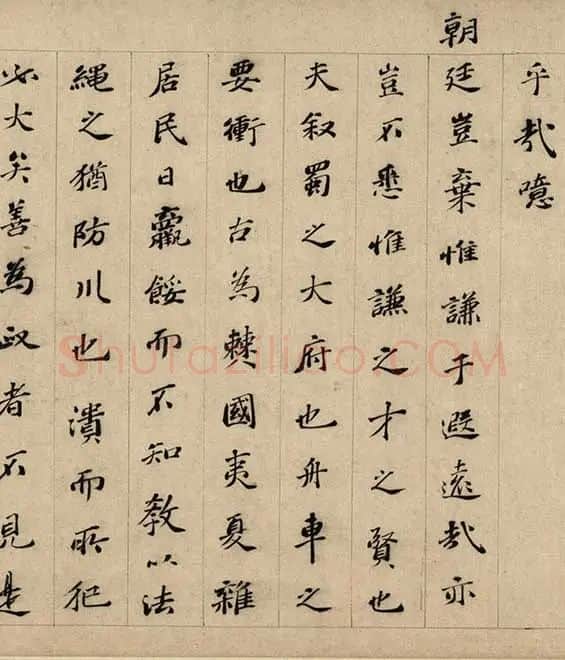 乎哉噫
朝廷豈棄惟謙于遐遠哉亦
豈不悉惟謙之才之賢也
夫叙蜀之大府也舟車之
要衝也古為僰國夷夏雜
居民日羸餒而不知教以法
繩之猶防川也潰而所犯
必大矣善為政者不見是
Shufaziliao.COM